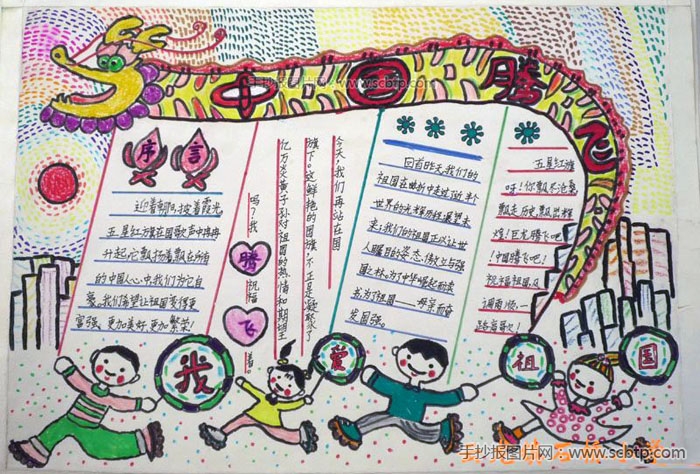 手抄报图片网:www.scbtp.com
中国腾飞
序言
迎着朝阳,披着霞光
五星红旗在国歌声中冉冉
升起,它飘扬着,飘在所有
的中国人心中,我们为它自
豪。我们希望让祖国变得更
富强、更加美好、更加繁荣!
今天,我们再站在国
旗下。这鲜艳的国旗,不正是凝聚了
亿万炎黄子孙对祖国的热情和期望
吗?我
祝福
着
腾
飞
回首昨天,我们的
祖国在
世界的光辉历程,展望未
来,我们的祖国正以让世
人瞩目的姿态,傲立与强
国之林,为了中华崛起而读
书,为了祖国——母亲而奋
发图强。
五星红旗
呀!你飘不
飘走历史,飘出辉
煌!巨龙腾飞吧
!中国腾飞吧!
祝福祖国风
调雨顺,一
路
我
爱
祖
国
手抄报图片网:www.scbtp.com